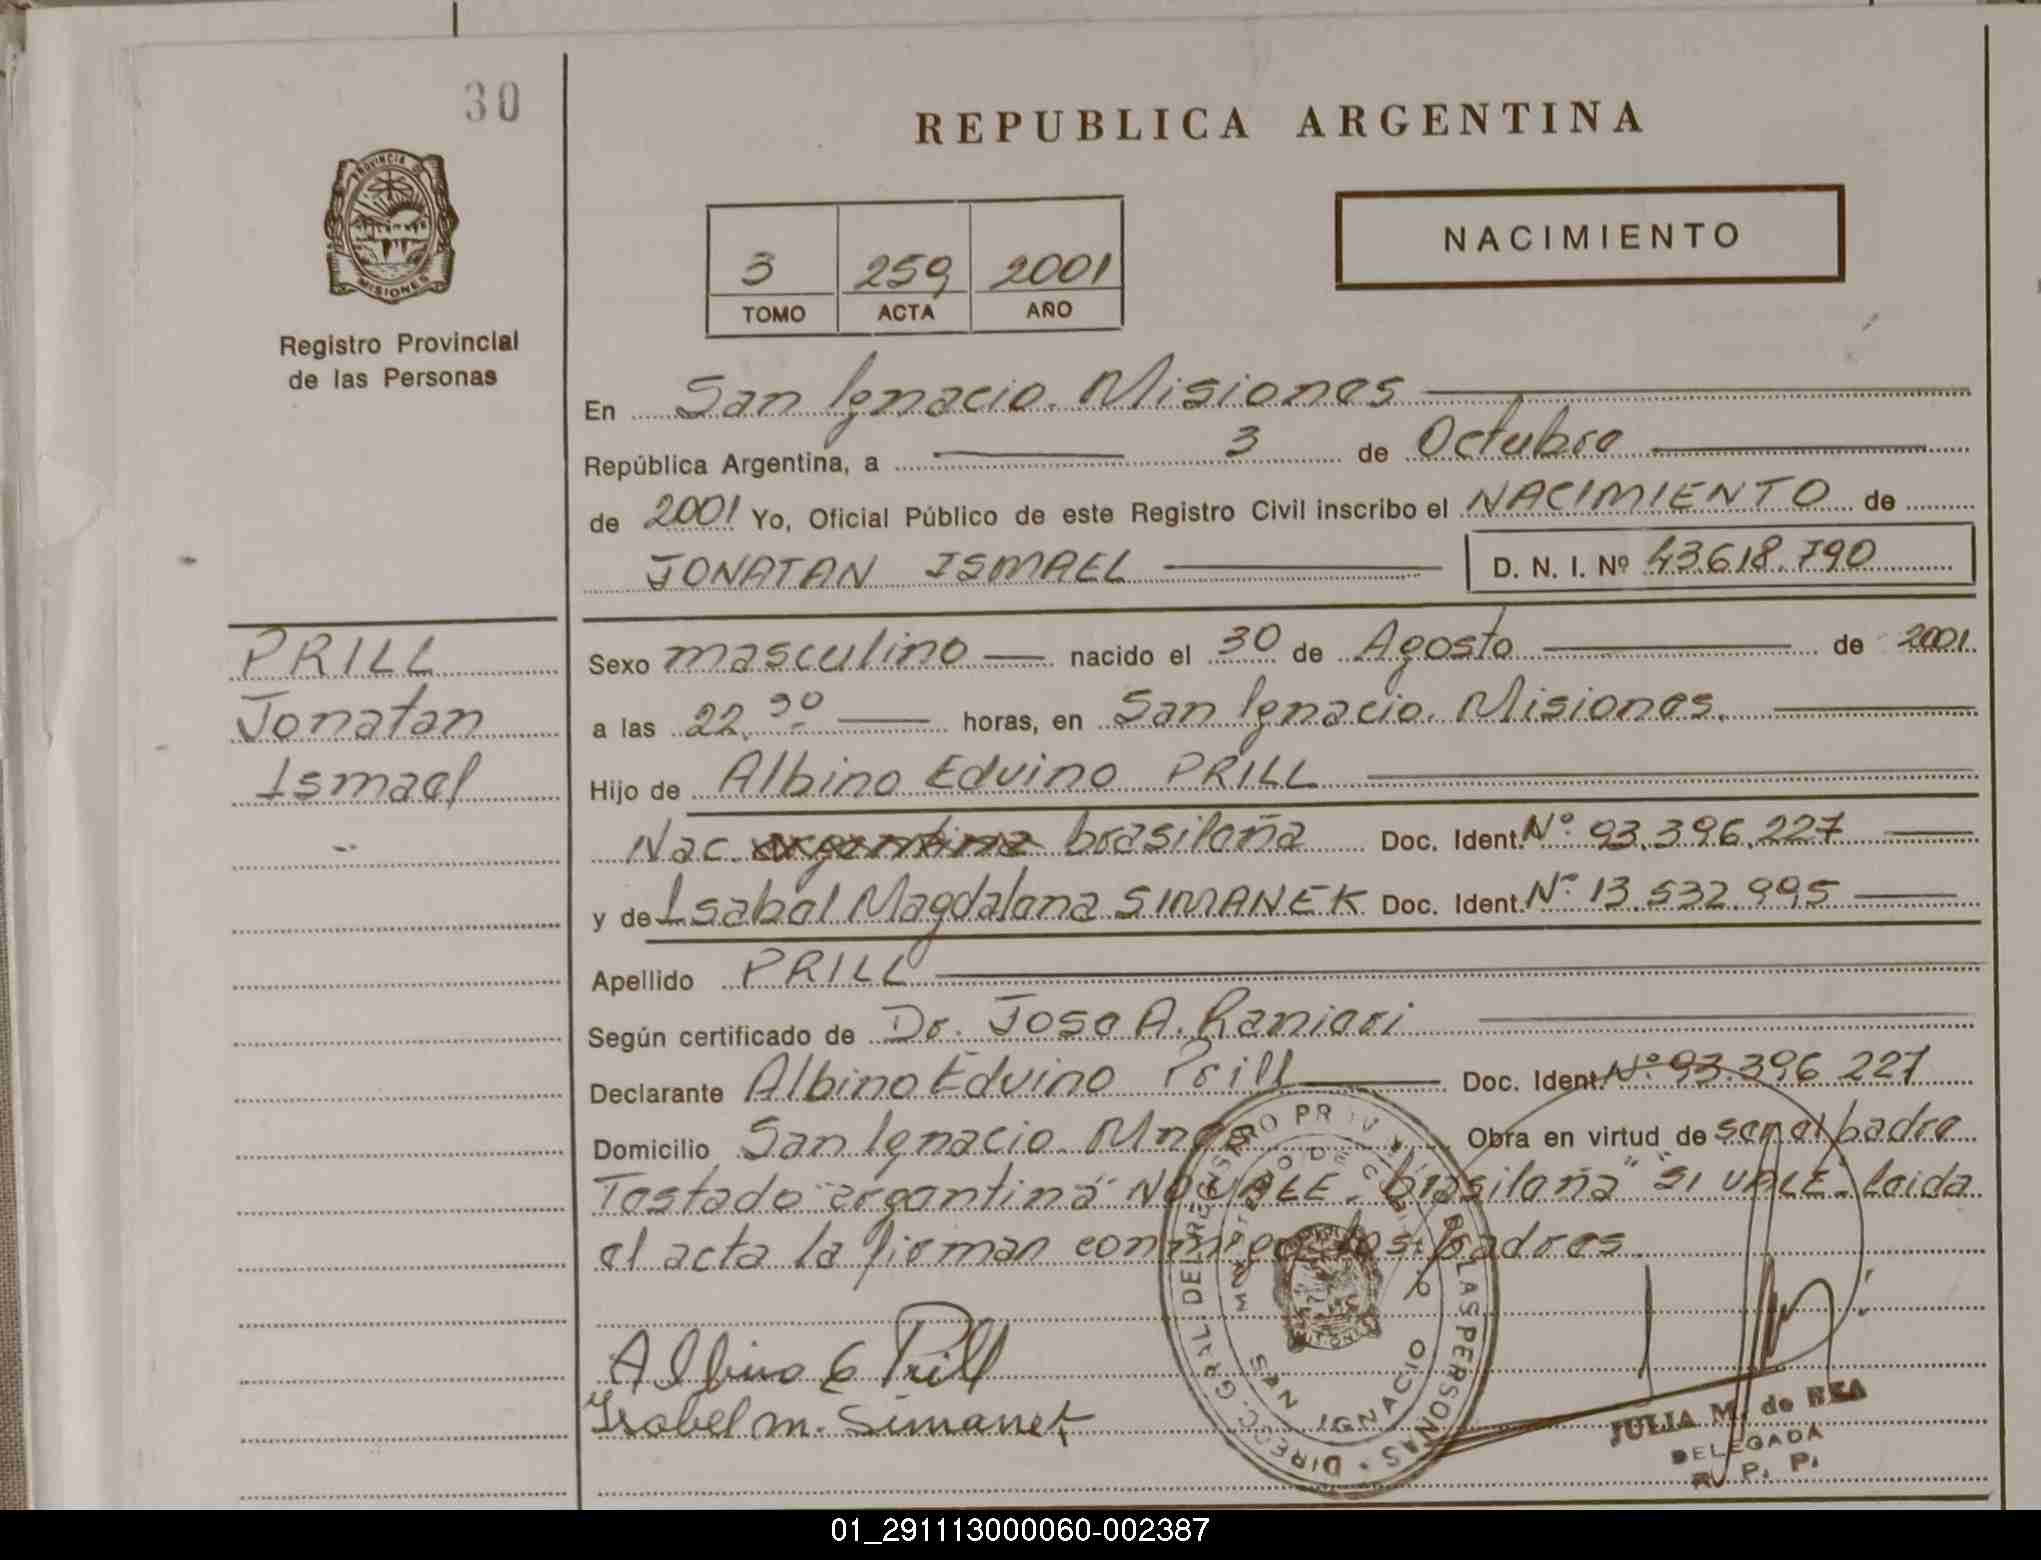 30
REPUBLICA ARGENTINA
PROVINCIA DE
MISIONES
NACIMIENTO
3 259 2001
TOMO ACTA AÑO
Registro Provincial
de las Personas
En San Ignacio. Misiones
República Argentina, a 3 de Octubre
de 2001 Yo, Oficial Público de este Registro Civil inscribo el NACIMIENTO de
JONATAN ISMAEL D. N. I. Nº 43.618.790
PRILL
Jonatan
Ismael
Sexo masculino nacido el 30 de Agosto de 2001
a las 22. horas, en San Ignacio. Misiones.
Hijo de Albino Eduino PRILL
Nac. argentina brasileña Doc. Ident. Nº 93.396.227
y de Isabel Magdalena SIMANEK Doc. Ident. Nº 13.532.995
Apellido PRILL
Según certificado de Dr. Jose A. Ranieri
Declarante Albino Eduino Prill Doc. Ident. Nº 93.396 227
Domicilio San Ignacio. Mnes Obra en virtud de ser el padre
Testado "argentina" NO VALE. "brasileña" "SI VALE" leida
el acta la firman conmigo los padres.
Albino E Prill
Isabel m. Simanek
DIRECC. GRAL. DEL REGISTRO PROV. DE LAS PERSONAS
MINISTERIO DE GOBIERNO
SAN IGNACIO
JULIA M. de REA
DELEGADA
R. P. P.
01_291113000060-002387